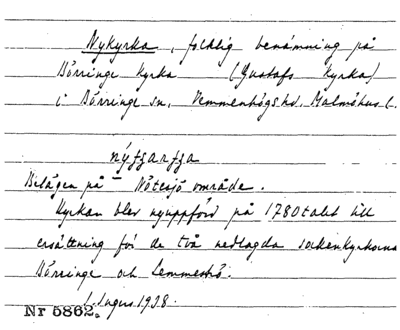 Nykyrka, folklig benämning på
Börringe kyrka (Gustafs kyrka)
i Börringe sn, Vemmenhögs hd, Malmöhus l.
Belägen på Nötesjö område.
Kyrkan blev nyuppförd på 1780talet till
ersättning för de två nedlagda sockenkyrkorna
Börringe och Lemmeströ.
1938.
Nr 5862.